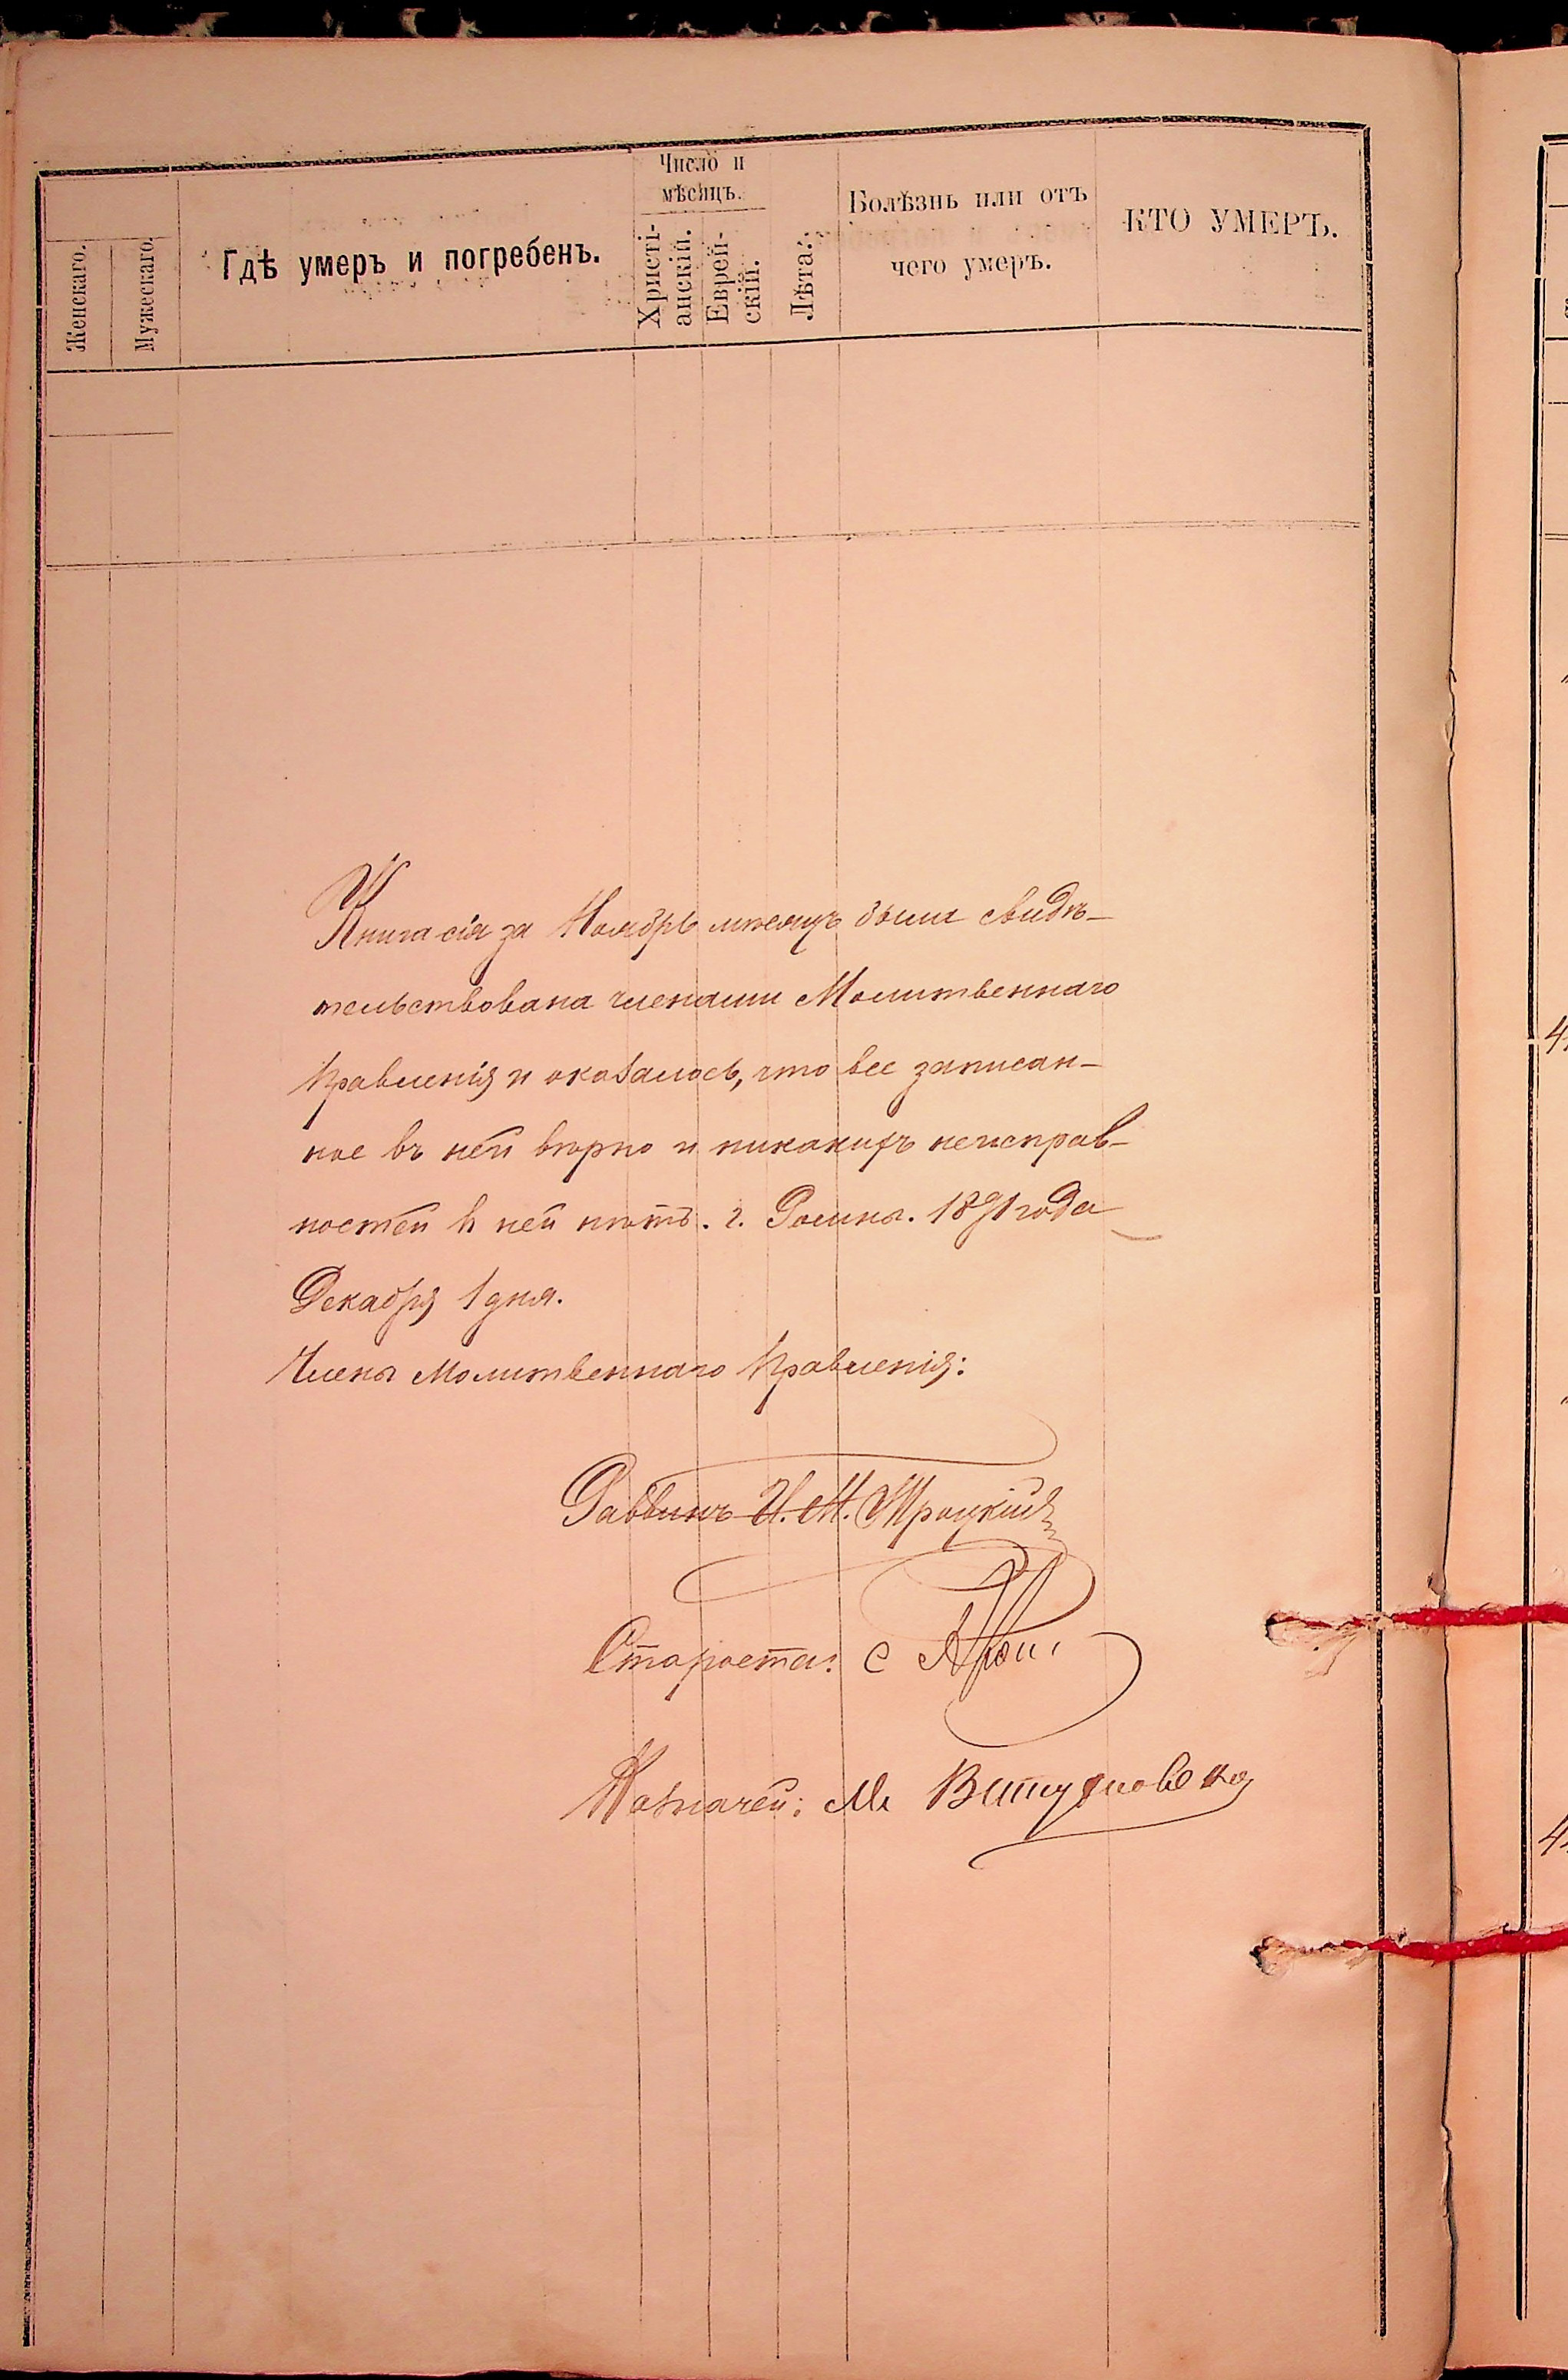 Число и
мѣсяцъ.
Женскаго.
Мужескаго.
Гдѣ умеръ и погребенъ.
Христі-
анскій.
Еврей-
скій.
Лѣта.
Болѣзнь или отъ
чего умеръ.
КТО УМЕРЪ.
Книга сія за Ноябрь мѣсяцъ была свидѣ-
тельствована членами Молитвеннаго
Правленія и оказалось, что все записан-
ное въ ней вѣрно и никакихъ неисправ-
ностей въ ней нѣтъ. г. Ромны. 1891 года
Декабря 1 дня.
Члены Молитвеннаго Правленія:
Раввинъ И. М. Троцкій
Староста: С
Казначей: М